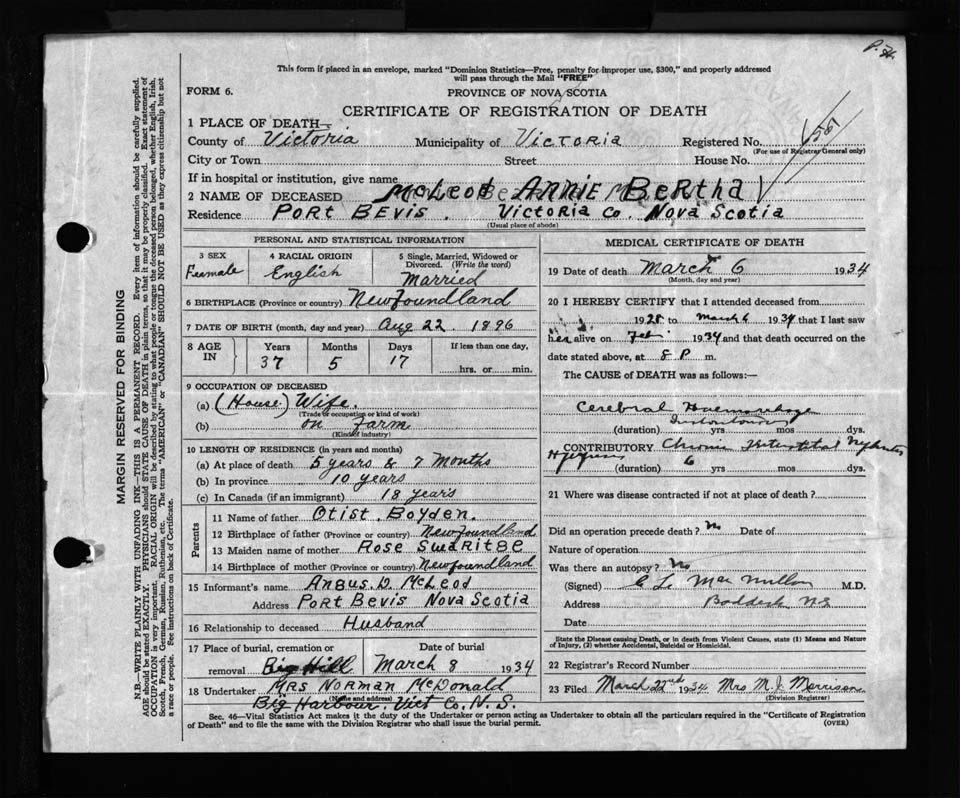 P. 34.
This form if placed in an envelope, marked "Dominion Statistics—Free, penalty for improper use, $300," and properly addressed
will pass through the Mail "FREE"
FORM 6.
PROVINCE OF NOVA SCOTIA
CERTIFICATE OF REGISTRATION OF DEATH
1 PLACE OF DEATH—
County of Victoria Municipality of Victoria Registered No.
(For use of Registrar General only)
City or Town Street House No.
If in hospital or institution, give name
2 NAME OF DECEASED McLeod ANNIE BeRtha
Residence PoRt BEVIS. Victoria Co. Nova Scotia
(Usual place of abode)
PERSONAL AND STATISTICAL INFORMATION
3 SEX 4 RACIAL ORIGIN 5 Single, Married, Widowed or
Divorced. (Write the word)
Female English Married
6 BIRTHPLACE (Province or country) Newfoundland
7 DATE OF BIRTH (month, day and year) Aug 22. 1896
8 AGE IN Years Months Days If less than one day,
37 5 17 hrs. or min.
9 OCCUPATION OF DECEASED
(a) (House) Wife.
(Trade or occupation or kind of work)
(b) on Farm
(Kind of industry)
10 LENGTH OF RESIDENCE (in years and months)
(a) At place of death 5 years & 7 Months
(b) In province 10 years
(c) In Canada (if an immigrant) 18 years
Parents
11 Name of father Otist. Boyden.
12 Birthplace of father (Province or country) Newfoundland
13 Maiden name of mother Rose
14 Birthplace of mother (Province or country) Newfoundland
15 Informant's name Angus. D. McLeod
Address PoRt Bevis Nova Scotia
16 Relationship to deceased Husband
17 Place of burial, cremation or Date of burial
removal Big Hill March 8 1934
18 Undertaker Mrs Norman McDonald
Big Harbour. Vict Co. N. S.
MEDICAL CERTIFICATE OF DEATH
19 Date of death March 6 1934
(Month, day and year)
20 I HEREBY CERTIFY that I attended deceased from
1928 to March 6 1934 that I last saw
her alive on Feb 1934 and that death occurred on the
date stated above, at 8 P m.
The CAUSE of DEATH was as follows:—
Cerebral Haemorrhage
(duration) yrs mos dys.
CONTRIBUTORY Chronic Interstitial
(duration) 6 yrs mos dys.
21 Where was disease contracted if not at place of death?
Did an operation precede death? No Date of
Nature of operation
Was there an autopsy? No
(Signed) C L MacMillan M.D.
Address Baddeck N S
Date
State the Disease causing Death, or in death from Violent Causes, state (1) Means and Nature
of Injury, (2) whether Accidental, Suicidal or Homicidal.
22 Registrar's Record Number
23 Filed March 22nd 1934 Mrs M. J. Morrison
(Division Registrar)
Sec. 46—Vital Statistics Act makes it the duty of the Undertaker or person acting as Undertaker to obtain all the particulars required in the "Certificate of Registration
of Death" and to file the same with the Division Registrar who shall issue the burial permit. (OVER)
MARGIN RESERVED FOR BINDING
N.B.—WRITE PLAINLY WITH UNFADING INK—THIS IS A PERMANENT RECORD. Every item of information should be carefully supplied.
AGE should be stated EXACTLY. PHYSICIANS should STATE CAUSE OF DEATH in plain terms, so that it may be properly classified. Exact statement of
OCCUPATION is very important. RACIAL ORIGIN will be described by stating to what people or tongue the deceased person belonged, whether English, Irish,
Scotch, French, German, Russian, Ruthenian, etc. The terms "AMERICAN" or "CANADIAN" SHOULD NOT BE USED as they express citizenship but not
a race or people. See instructions on back of Certificate.